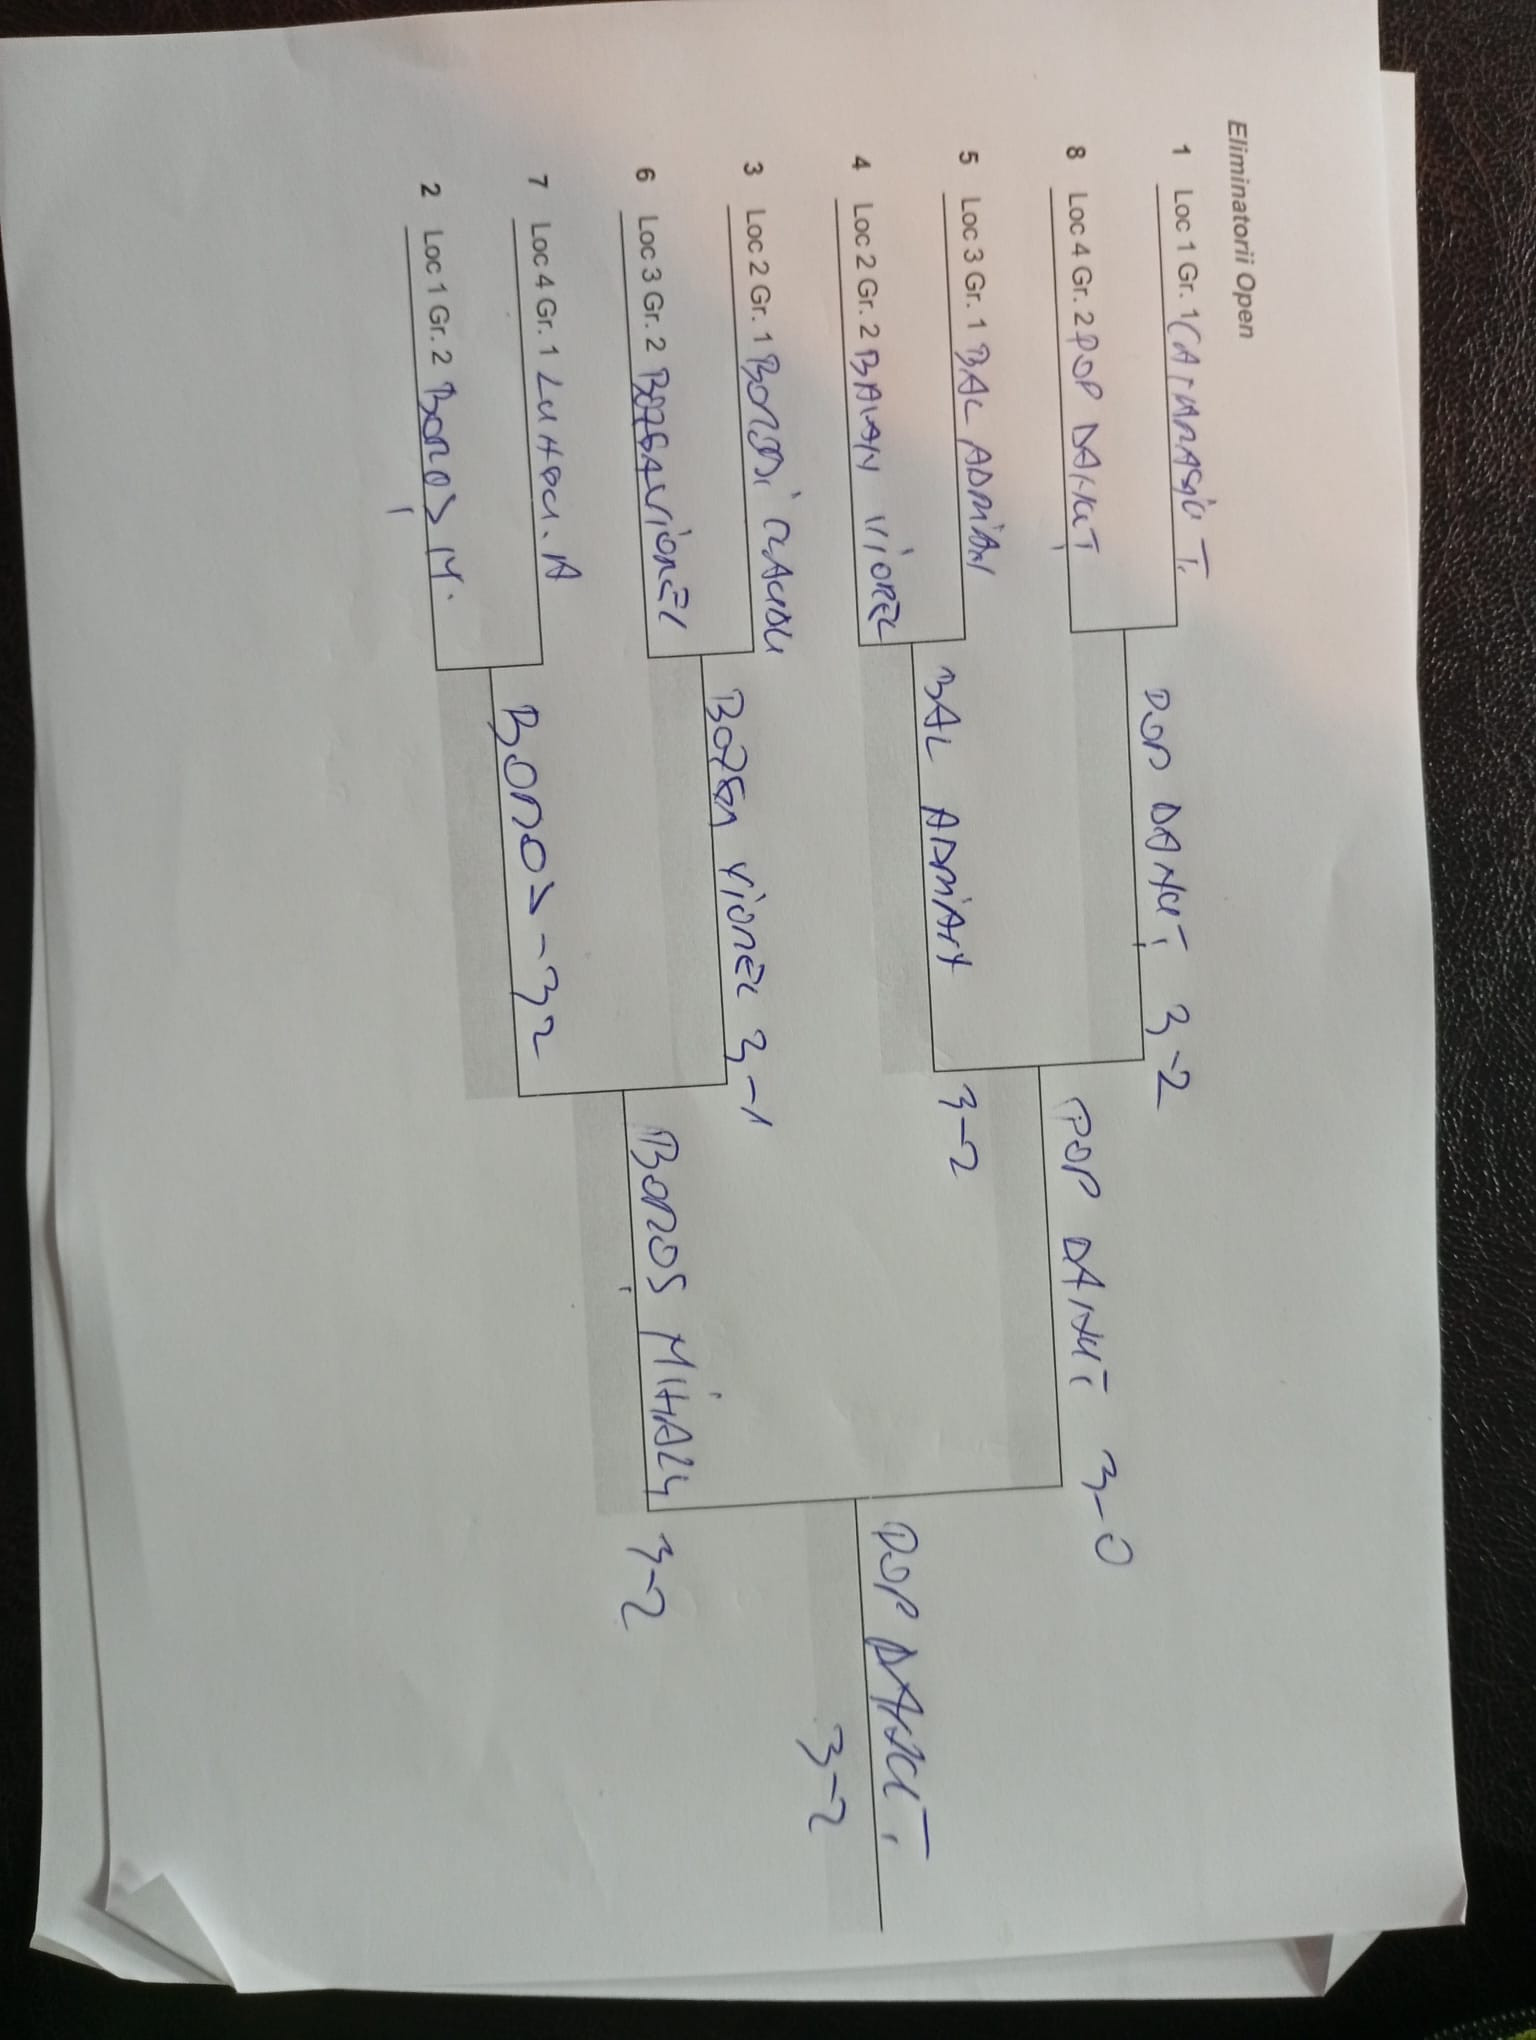 Eliminatorii Open
1 Loc 1 Gr. 1 CATARAGIU T.
8 Loc 4 Gr. 2 POP DANUȚ
5 Loc 3 Gr. 1 BAL ADRIAN
4 Loc 2 Gr. 2 BALAN VIOREL
3 Loc 2 Gr. 1 BORODI CLAUDIU
6 Loc 3 Gr. 2 VIOREL
7 Loc 4 Gr. 1
2 Loc 1 Gr. 2 BOROȘ M.
POP DANUȚ 3-2
BAL ADRIAN 3-2
VIOREL 3-1
BOROS - 3 2
POP DANUT 3-0
BOROȘ MIHALY 3-2
POP DANUȚ
3-2